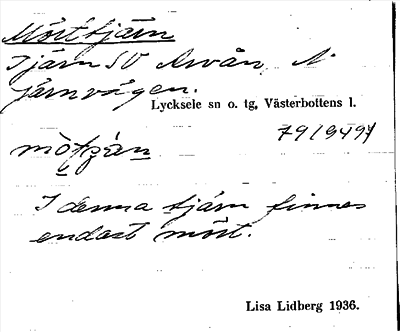 Mörttjärn
Tjärn SV Arvån, N
järnvägen.
Lycksele sn o. tg, Västerbottens l.
I denna tjärn finnes
endast mört.
Lisa Lidberg 1936.